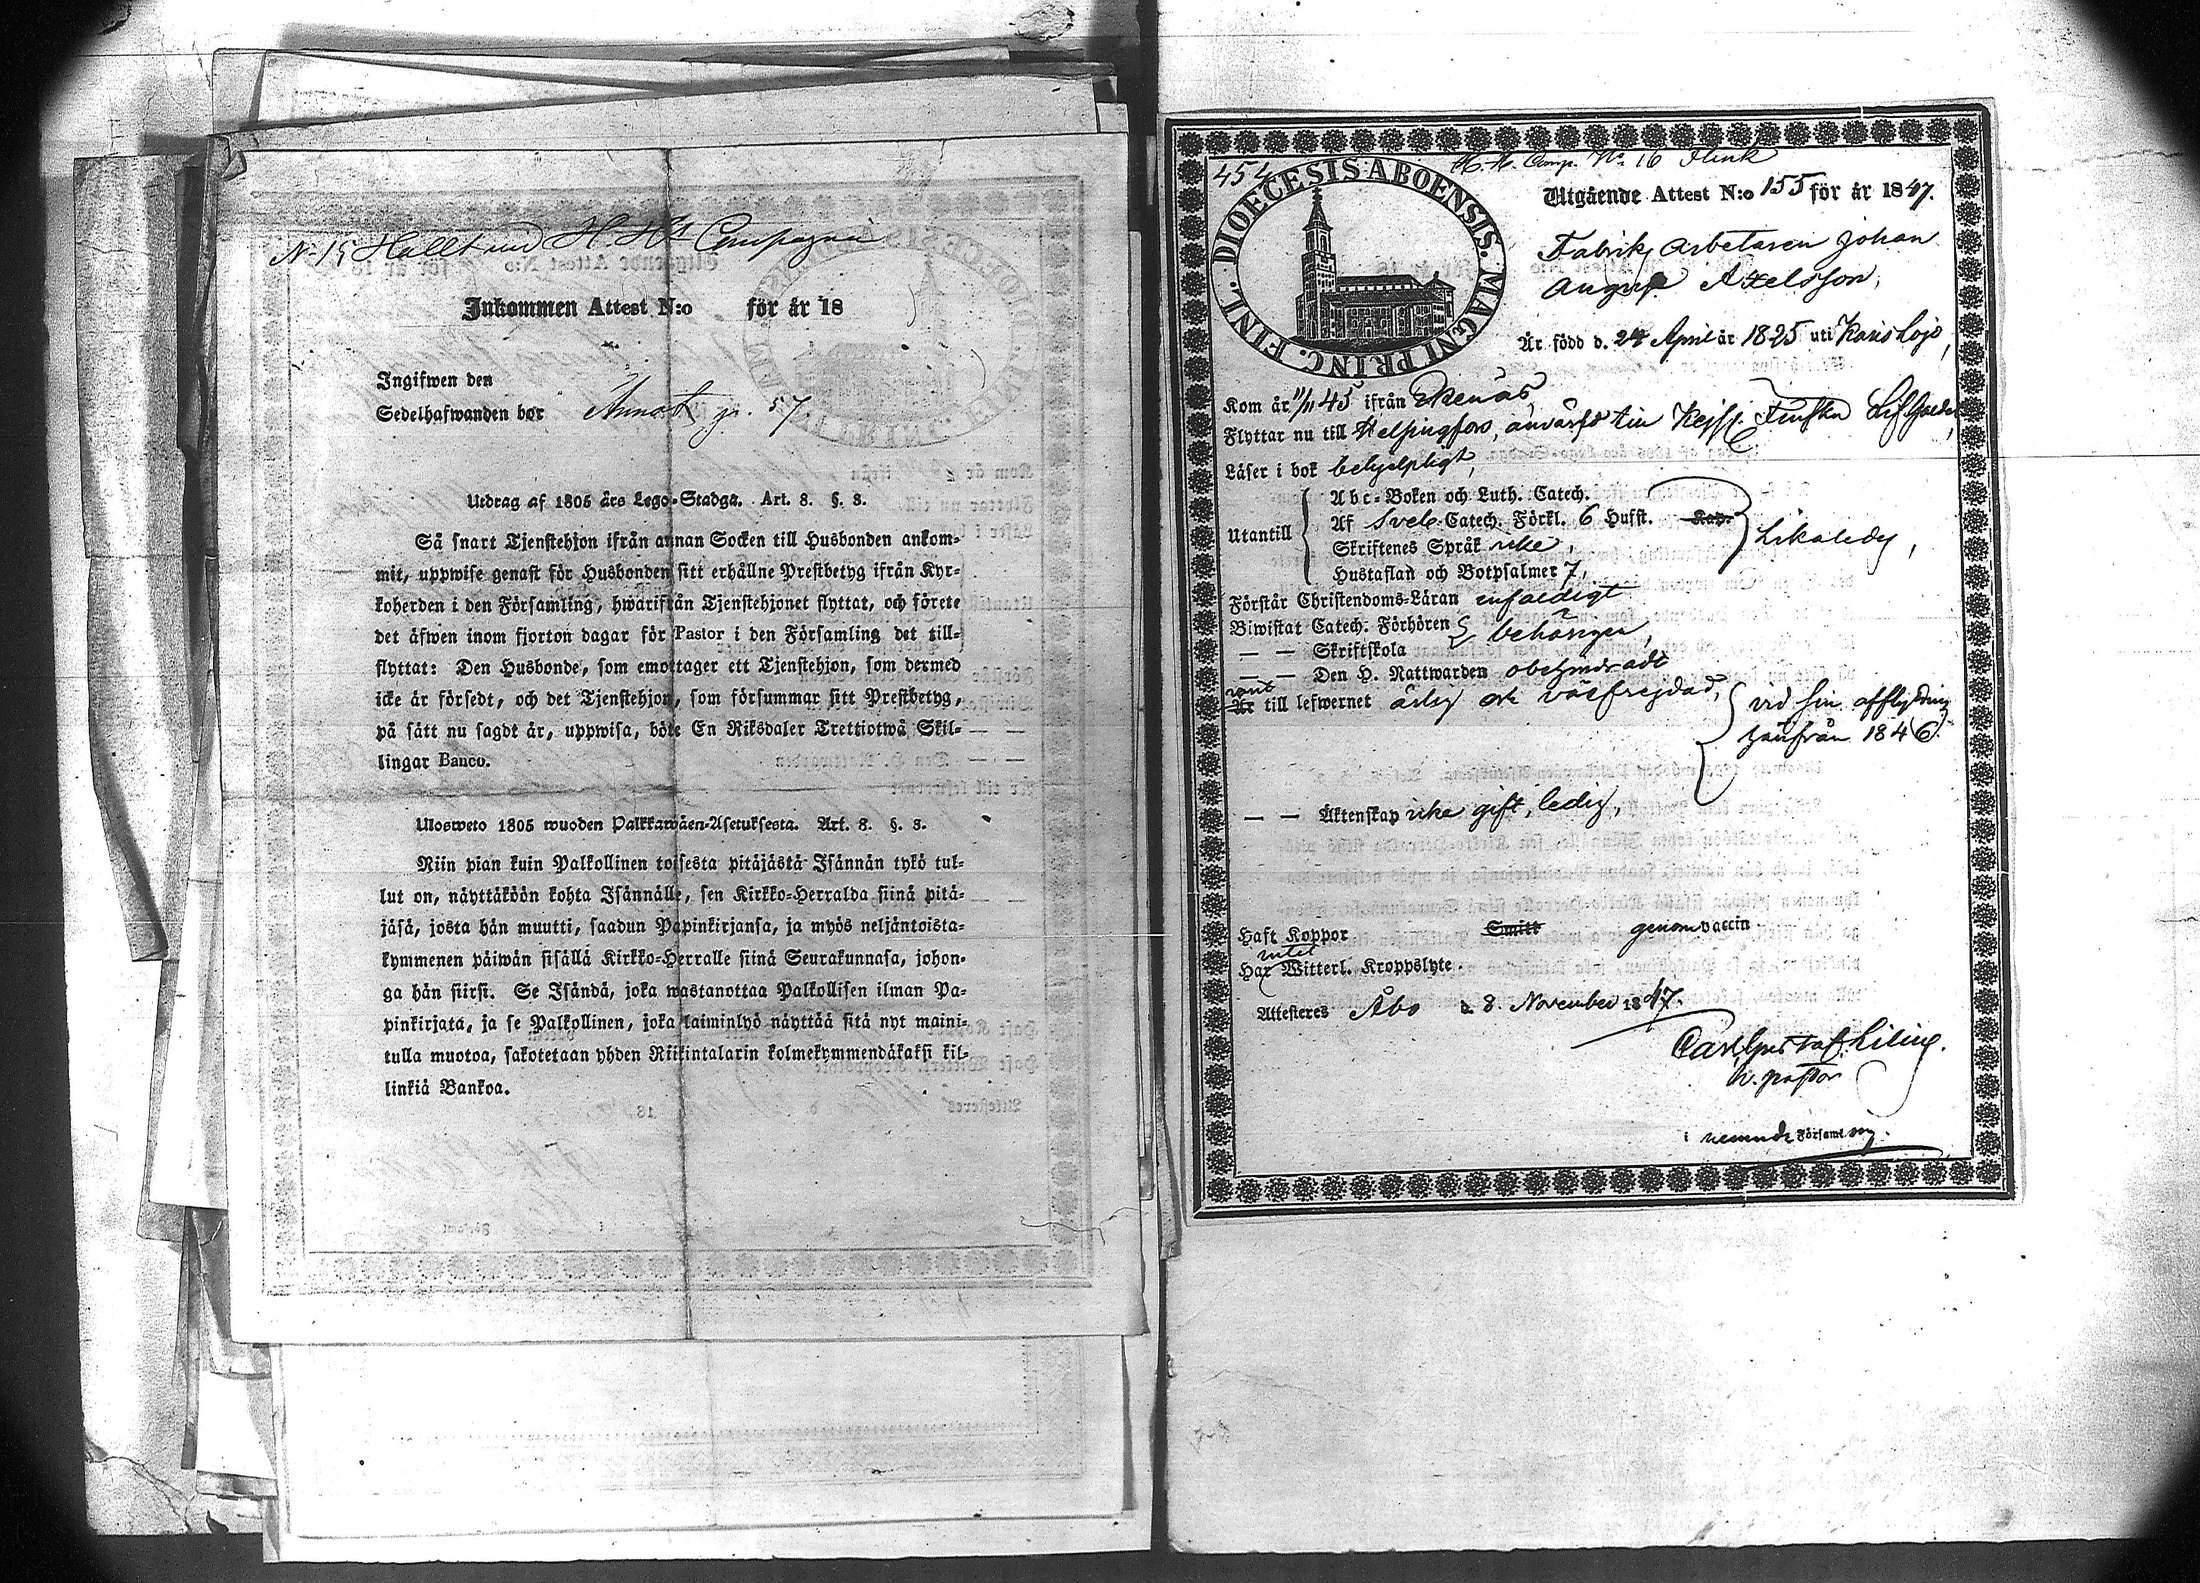 N:15 Halltund H. H:s Compagnie
Inkommen Attest N:o för år 18
Ingifwen den
Sedelhafwanden bor Annat p. 57.
Utdrag af 1805 års Lego-Stadga. Art. 8. §. 3.
Så snart Tjenstehjon ifrån annan Socken till Husbonden ankom-
mit, uppwise genast för Husbonden sitt erhållne Prestbetyg ifrån Kyr-
koherden i den Församling, hwarifrån Tjenstehjonet flyttat, och förete
det äfwen inom fjorton dagar för Pastor i den Församling det till-
flyttat: Den Husbonde, som emottager ett Tjenstehjon, som dermed
icke är försedt, och det Tjenstehjon, som försummar sitt Prestbetyg,
på sätt nu sagdt är, uppwisa, böte En Riksdaler Trettiotwå Skil-
lingar Banco.
Ulosweto 1805 wuoden Palkkawäen-Asetuksesta. Art. 8. §. 3.
Niin pian kuin Palkollinen toisesta pitäjästä Isännän tykö tul-
lut on, näyttäköön kohta Isännälle, sen Kirkko-Herralda siinä pitä-
jäsä, josta hän muutti, saadun Papinkirjansa, ja myös neljäntoista-
kymmenen päiwän sisällä Kirkko-Herralle siinä Seurakunnasa, johon-
ga hän siirsi. Se Isändä, joka wastanottaa Palkollisen ilman Pa-
pinkirjata, ja se Palkollinen, joka laiminlyö näyttää sitä nyt maini-
tulla muotoa, sakotetaan yhden Riikintalarin kolmekymmendäkaksi kil-
linkiä Bankoa.
454
H. H. Comp. No. 16 Flink
DIOECESIS ABOENSIS. MAGNI PRINC. FINL.
Utgående Attest N:o 155 för år 1847.
Fabriks arbetaren Johan
August Axelsson,
Är född d. 24 April år 1825 uti Karislojo,
Kom år 11/11 45 ifrån Ekenäs
Flyttar nu till Helsingfors, Kejs. Finska
Läser i bok behjelpligt,
Abc-Boken och Luth. Catech.
Af Sveb. Catech. Förkl. 6 Hufst. Kap.
Utantill Skriftenes Språk icke, Likaledes,
Hustaflan och Botpsalmer 7,
Förstår Christendoms-Läran enfaldigt
Biwistat Catech. Förhören behörigen,
— — Skriftskola
— — Den H. Nattwarden obehindradt
warit
Är till lefwernet ärlig och wälfrejdad, vid sin afflyttning
härifrån 1846.
— — Äktenskap icke gift, ledig,
Haft Koppor Smitt genom vaccin
intet
Har Witterl. Kroppslyte.
Attesteres Åbo d. 8. November 1847.
Carl Gustaf
v. pastor
i nemnde Församling.